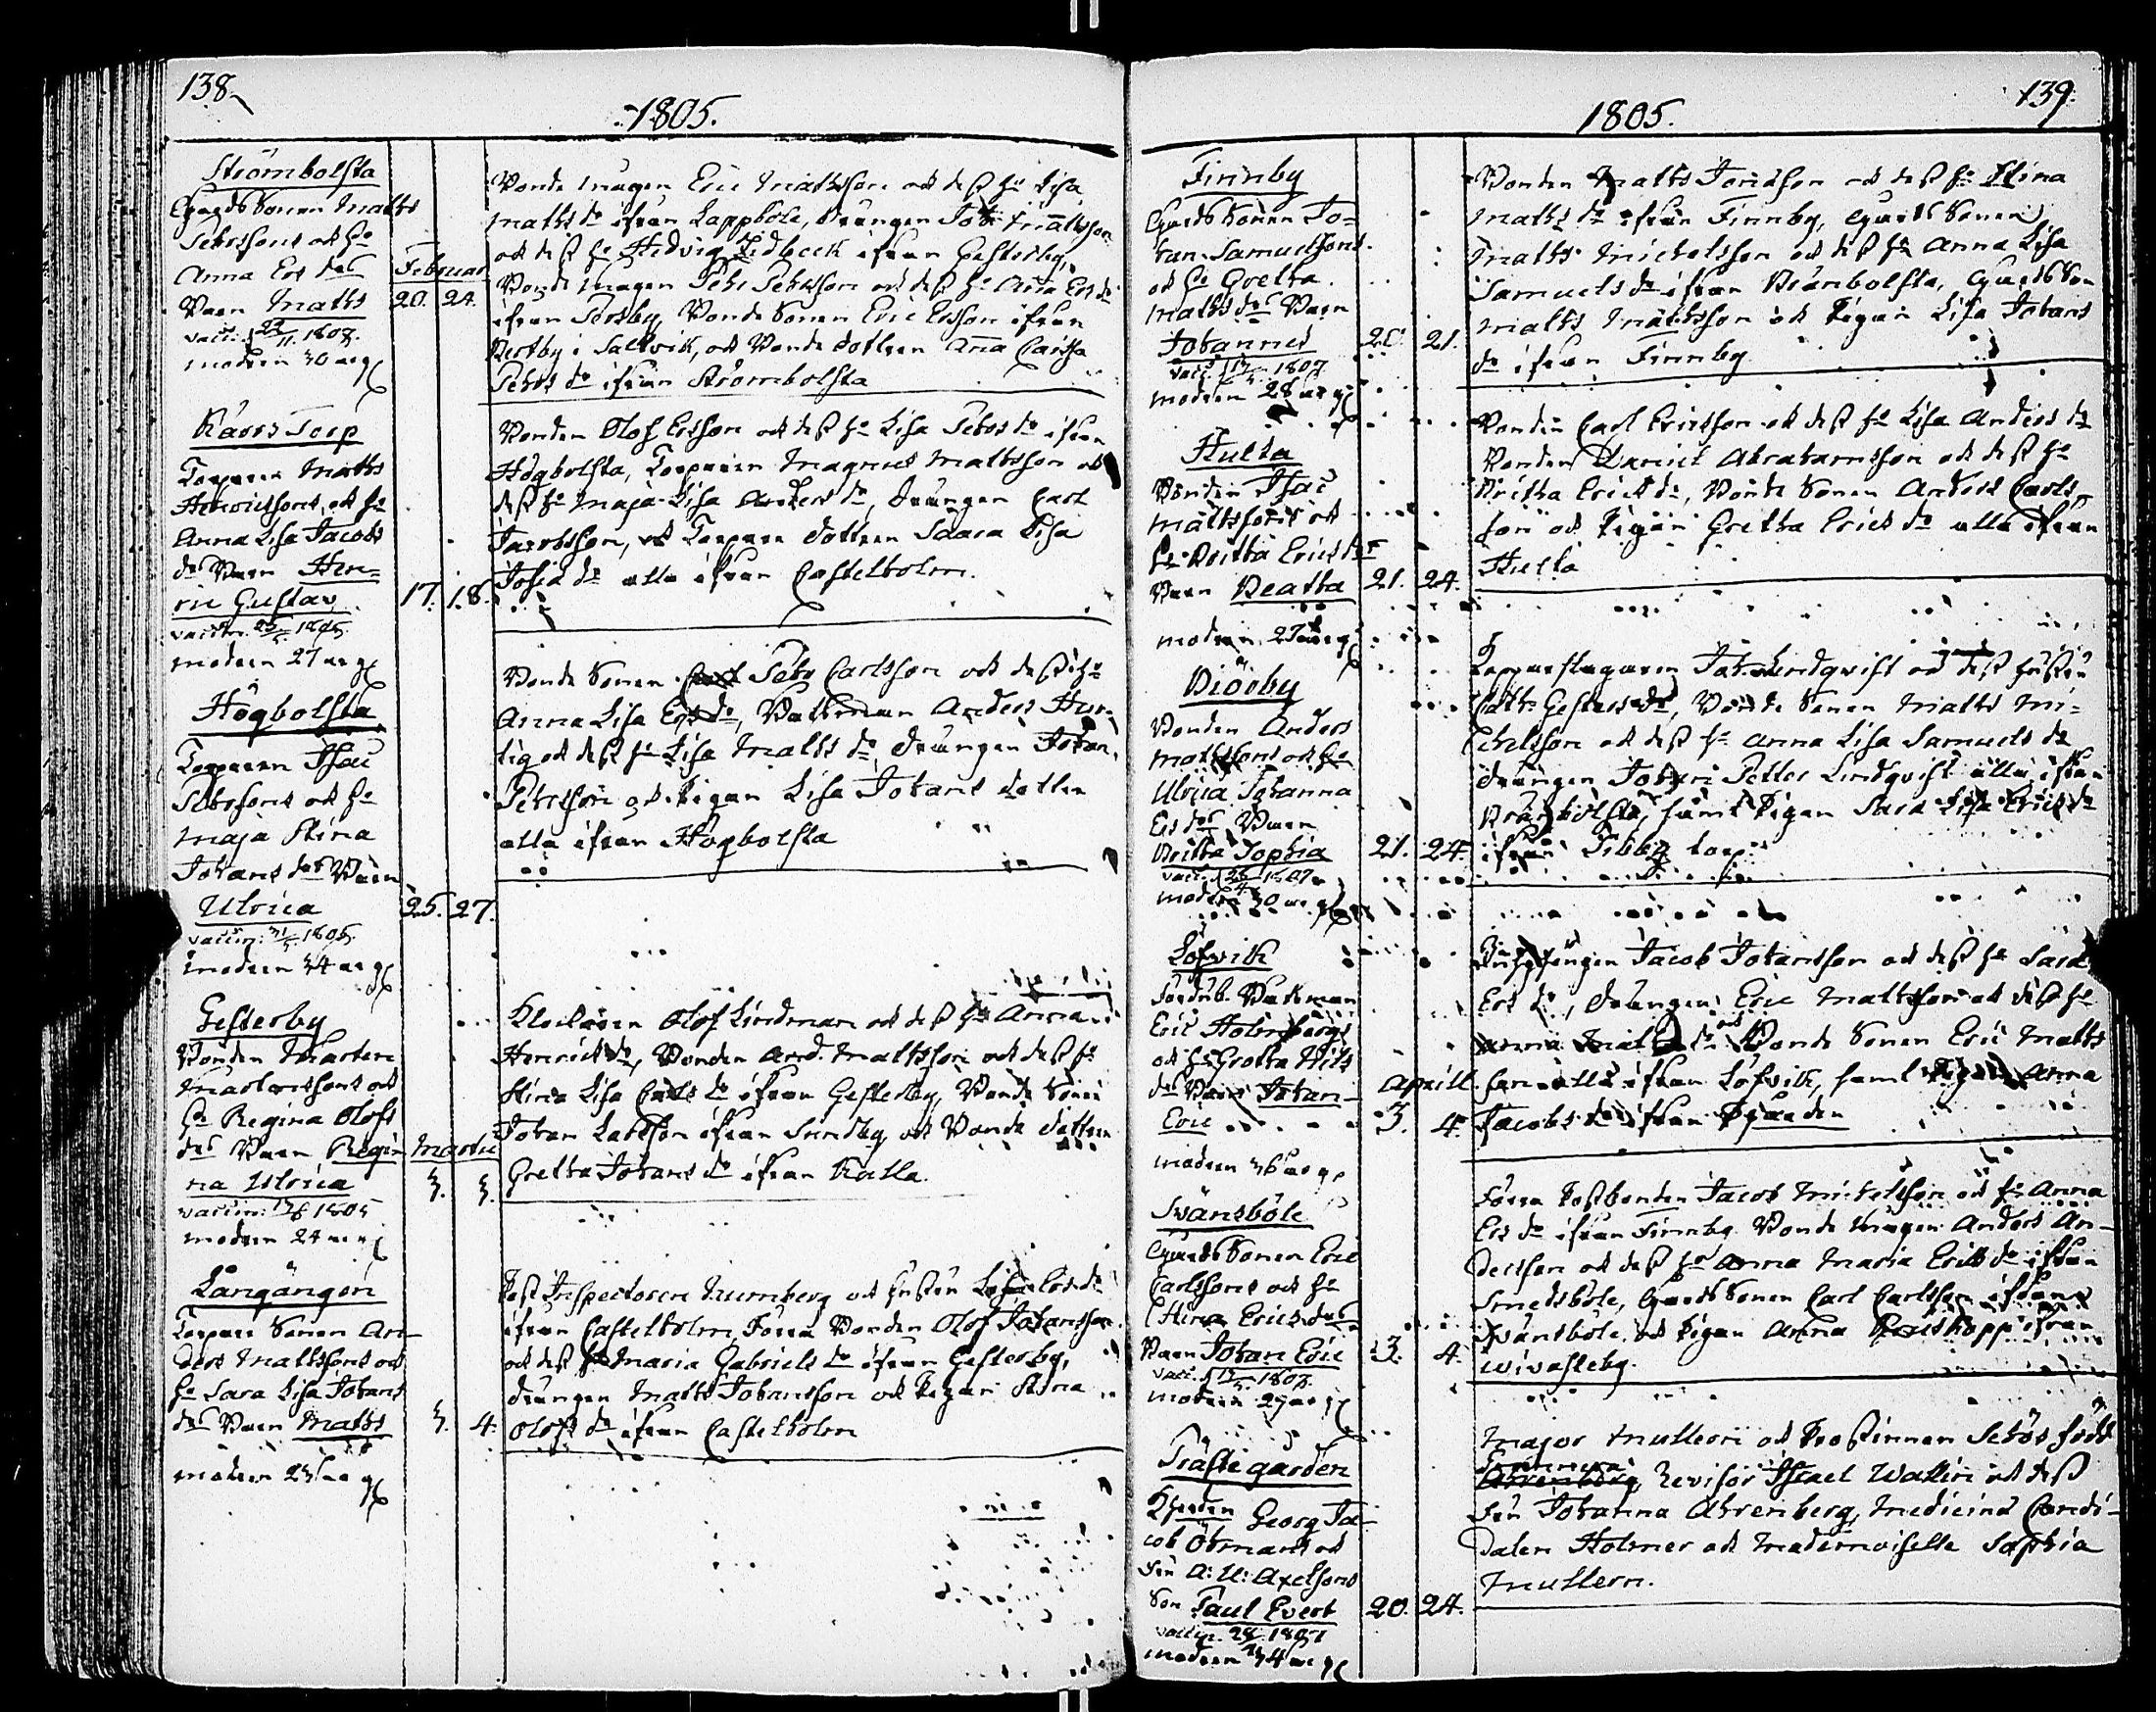 138
1805.
Strömbolsta
Gårds Sonen Matts
Pehrssons och H:o
Anna Ers d:r
Februar
Barn Matts 20. 24.
vacc: 1807.
modren 30 år g
Bonde mågen Eric Mattsson och dess H:o Lisa
Matts d:r ifrån Lappböle, Drängen Joh: Mattsson
och dess H:o Hedvig Lidbeck ifrån Gesterby,
Bonde mågen Pehr Pehrsson och dess H:o Ers d:r
ifrån Persby, Bonde Sonen Eric Ersson ifrån
i Saltvik, och Bonde dottren Anna Caisa
Pehrs d:r ifrån Strömbolsta
Kårrs Torp
Torparen Matts
Henricssons och H:o
Anna Lisa Jacobs
d:r Barn Hen=
ric Gustav 17. 18.
vaccin. 1805.
modren 27 år g
Bonden Olof Ersson och dess H:o Lisa Pehrs d:r ifrån
Högbolsta, Torparen Magnus Mattsson och
dess H:o Maja Lisa Anders d:r, Drängen Carl
Jacobsson, och Torpare dottren Saara Lisa
Johs d:r alla ifrån Castelholm.
Högbolsta
Torparen Isac
Pehrssons och H:o
Maja Stina
Johans d:r Barn
Ulrica 25. 27.
vaccin: 1805.
modren 34 år g
Bonde Sonen Pehr Carlsson och dess H:o
Anna Lisa Ers d:r, Båtsman Anders Hur=
tig och dess H:o Lisa Matts d:r Drängen Johan
Pehrsson och Pigan Lisa Johans dotter
alla ifrån Högbolsta
Gesterby
Bonden Mårten
Mårtenssons och
H:o Regina Olofs
d:r Barn Regi Martii
na Ulrica 3. 5.
vaccin: 1805
modren 24 år g
Klockaren Olof Lindman och dess H:o Anna
Henrics d:r, Bonden And. Mattsson och dess H:o
Stina Lisa Carls d:r ifrån Gesterby, Bonde Sonen
Johan Larsson ifrån Sundby, och Bonde dottren
Gretha Johans d:r ifrån Kalla.
Långängen
Torpare Sonen An-
ders Mattssons och
H:o Sara Lisa Johans
d:r Barn Matts 3. 4.
modren 25 år g
Post Inspectoren Nurnberg och Hustru Ers d:r
ifrån Castelholm, Förra Bonden Olof Johansson
och dess H:o Maria Gabriels d:r ifrån Gesterby,
Drängen Matts Johansson och Pigan Stina
Olofs d:r ifrån Castelholm
139.
1805.
Finnby
Gårds Sonen Jo=
han Samuelssons
och H:o Gretha
Matts d:r Barn
Johannes 20. 21.
vacc: 1807
modren 28 år g
Bonden Matts Jorickson och dess H:o Stina
Matts d:r ifrån Finnby, Gårds Sonen
Matts Michelsson och dess H:o Anna Lisa
Samuels d:r ifrån Brånbolsta, Gårds Son
Matts Mattsson och Pigan Lisa Johans
d:r ifrån Finnby
Hulta
Bonden Isac
Mattssons och
H:o Britha Erics d:r
Barn Beatha 21. 24.
modren 27 år g
Bonden Carl Ericsson och dess H:o Lisa Anders d:r
Bonden Daniel Abrahamsson och dess H:o
Britha Erics d:r, Bonde Sonen Anders Carls=
son och Pigan Gretha Erics d:r alla ifrån
Hulta
Biörby
Bonden Anders
Mattssons och H:o
Ulrica Johanna
Ers d:r Barn
Britha Sophia 21. 24.
vacc: 1807
modren 30 år g
Kopparslagaren Jak. Lindqvist och dess Hustru
Cath: d:r, Bonde Sonen Matts Mi=
chelsson och dess H:o Anna Lisa Samuels d:r
Drängen Johan Petter Lindqvist alla ifrån
Brånbolsta, samt Pigan Sara Lisa Erics d:r
ifrån Tibby torp
Löfvik
Båtsman
Eric Holmbergs
och H:o Gretha Nils
d:r Barn Johan Aprill.
Eric 3. 4.
modren 36 år g
Jacob Johansson och dess H:o Sara
Ers d:r, Drängen Eric Mattsson och dess H:o
Anna Matts d:r och Bonde Sonen Eric Matts
son alla ifrån Löfvik, samt Pigan Anna
Jacobs d:r ifrån
Svänsböle
Gårds Sonen Eric
Carlssons och H:o
Stina Erics d:r
Barn Johan Eric 3. 4.
vacc: 1807.
modren 29 år g
Förra Postbonden Jacob Michelsson och H:o Anna
Ers d:r ifrån Finnby. Bonde mågen Anders An-
dersson och dess H:o Anna Maria Erics d:r ifrån
Smedsböle, Gårds Sonen Carl Carlsson ifrån
Svänsböle, och Pigan Anna ifrån
Wivasteby.
Prästegården
Kherden Georg Ja-
cob Öhmans och
Fru A: U: Axelsons
Son Paul Evert 20. 24.
vaccin. 1807
modren 34 år g
Major Mullern och Prostinnan Sehös född
Revisor Israel Wallin och dess
Fru Johanna Ahrenberg, Medicinæ Candi-
daten Holmer och Mademoiselle Sophia
Mullern.